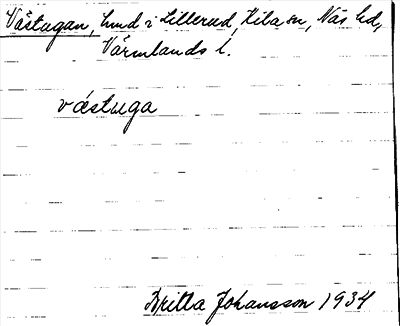 Västugan, Lund i Lillerud, Kila sn, Näs hd,
Värmlands l.
västuga
Britta Johansson 1934